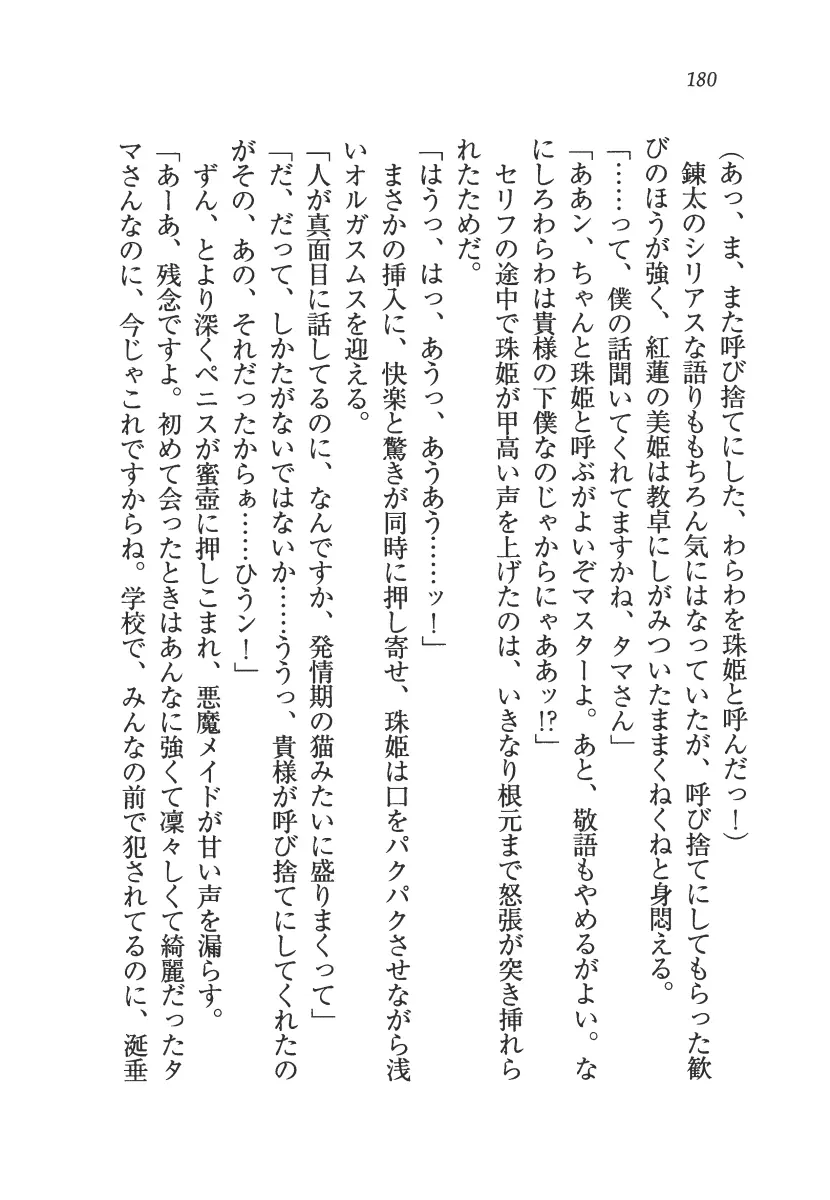 180
(あっ、ま、また呼び捨てにした、わらわを珠姫と呼んだっ!)
錬太のシリアスな語りももちろん気にはなっていたが、呼び捨てにしてもらった歓
びのほうが強く、紅蓮の美姫は教卓にしがみついたままくねくねと身悶える。
「……って、僕の話聞いてくれてますかね、タマさん」
「ああン、ちゃんと珠姫と呼ぶがよいぞマスターよ。あと、敬語もやめるがよい。な
にしろわらわは貴様の下僕なのじゃからにゃああッ!?」
セリフの途中で珠姫が甲高い声を上げたのは、いきなり根元まで怒張が突き挿れら
れたためだ。
「はうっ、はっ、あうっ、あうあう……ッ!」
まさかの挿入に、快楽と驚きが同時に押し寄せ、珠姫は口をパクパクさせながら浅
いオルガスムスを迎える。
「人が真面目に話してるのに、なんですか、発情期の猫みたいに盛りまくって」
「だ、だって、しかたがないではないか……ううっ、貴様が呼び捨てにしてくれたの
がその、あの、それだったからぁ……ひうン!」
ずん、とより深くペニスが蜜壺に押しこまれ、悪魔メイドが甘い声を漏らす。
「あーあ、残念ですよ。初めて会ったときはあんなに強くて凛々しくて綺麗だったタ
マさんなのに、今じゃこれですからね。学校で、みんなの前で犯されてるのに、涎垂